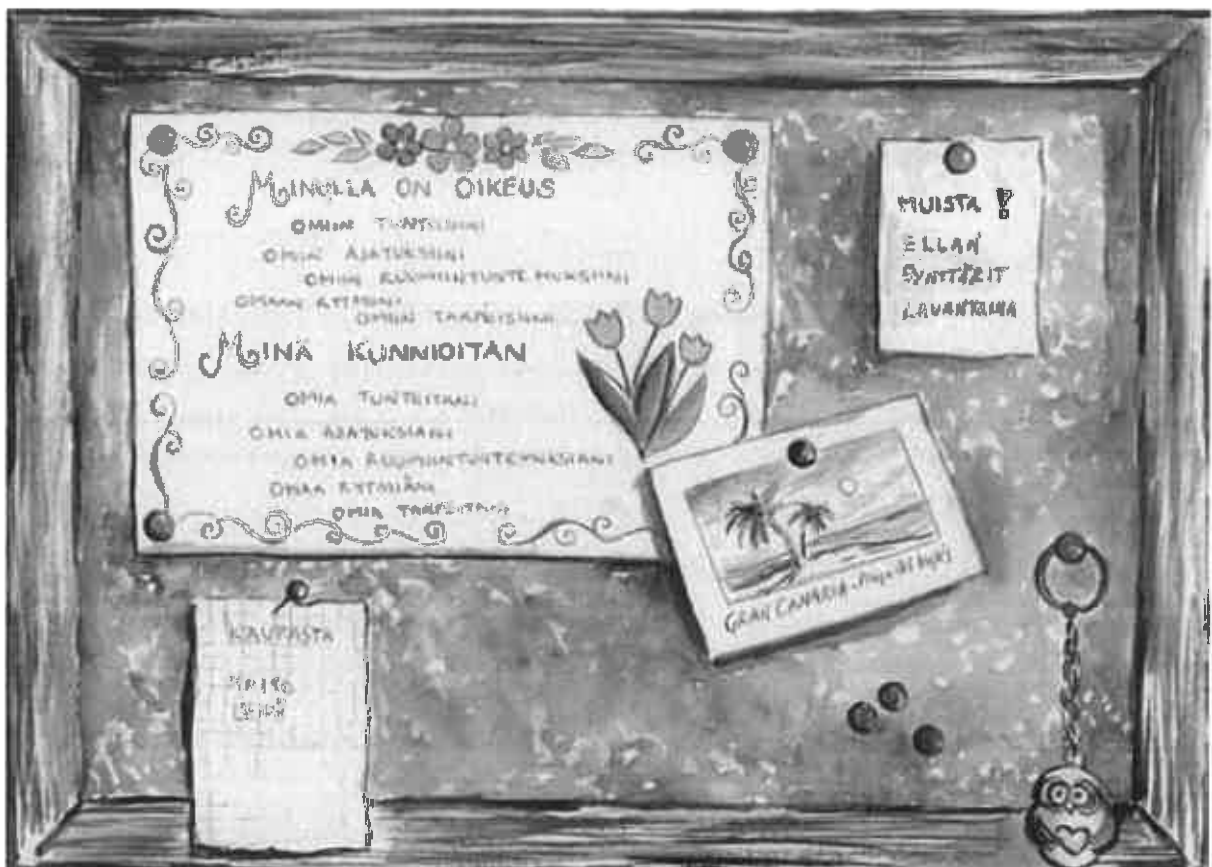 MINULLA ON OIKEUS
OMIIN TUNTEISIINI
OMIIN AJATUKSIINI
OMIIN RUUMIINTUNTEMUKSIINI
OMAAN RYTMIINI
OMIIN TARPEISIINI
MINÄ KUNNIOITAN
OMIA TUNTEITANI
OMIA AJATUKSIANI
OMIA RUUMIINTUNTEMUKSIANI
OMAA RYTMIÄNI
OMIA TARPEITANI
MUISTA !
ELLAN
SYNTTÄRIT
LAUANTAINA
GRAN CANARIA
KAUPASTA